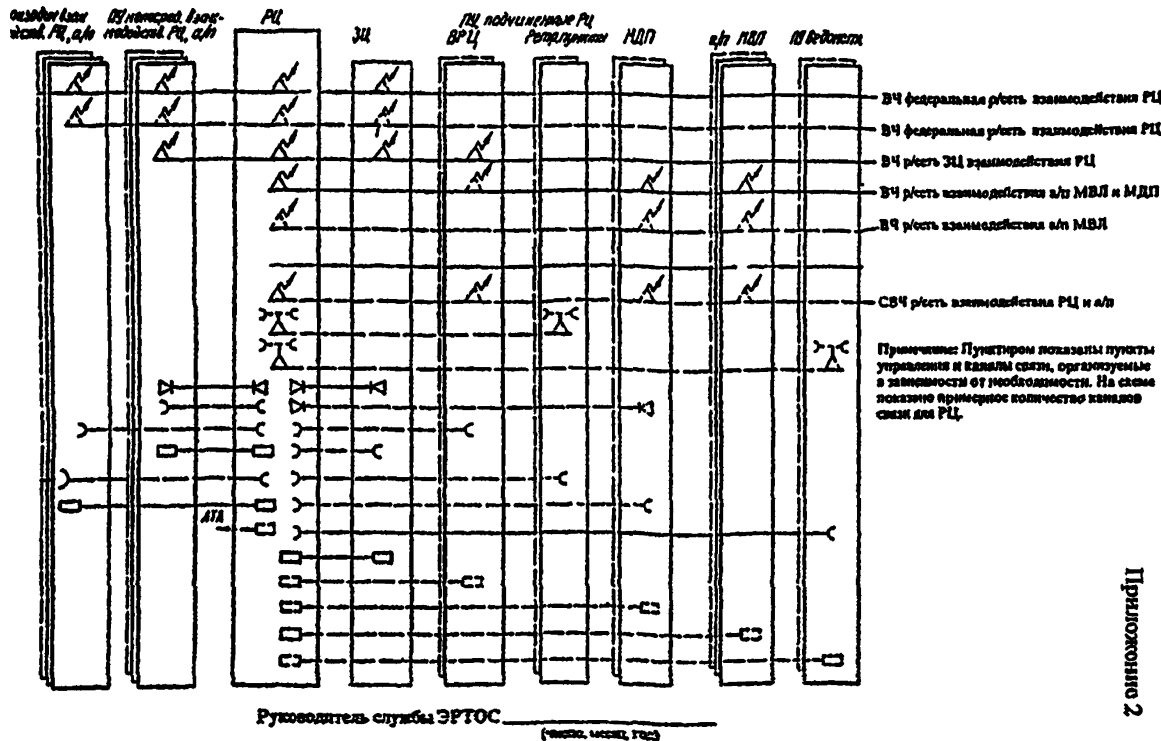 РЦ
ПУ подчиненные РЦ
ЗЦ
ВРЦ
МДП
а/п МВЛ
ВЧ федеральная р/сеть взаимодействия РЦ
ВЧ федеральная р/сеть взаимодействия РЦ
ВЧ р/сеть ЗЦ взаимодействия РЦ
ВЧ р/сеть взаимодействия а/п МВЛ и МДП
ВЧ р/сеть взаимодействия а/п МВЛ
СВЧ р/сеть взаимодействия РЦ и а/п
Примечание: Пунктиром показаны пункты
управления и каналы связи, организуемые
в зависимости от необходимости. На схеме
показано примерное количество каналов
связи для РЦ.
АТА
Приложение 2
Руководитель службы ЭРТОС
(число, месяц, год)